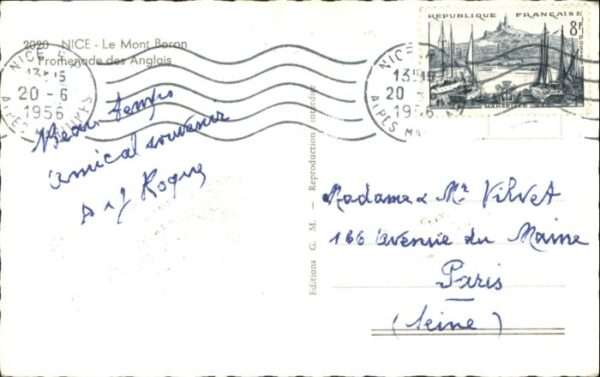 2920 - NICE - Le Mont Boron
Promenade des Anglais
NICE
13H15
20 - 6
1956
ALPES MMES
NICE
13H15
20 - 6
1956
ALPES
REPUBLIQUE FRANCAISE
8F
Beau temps
amical souvenir
A et J Roque
Editions G. M. - Reproduction interdite
Madame & Mr Vilvet
166 avenue du Maine
Paris
(Seine)